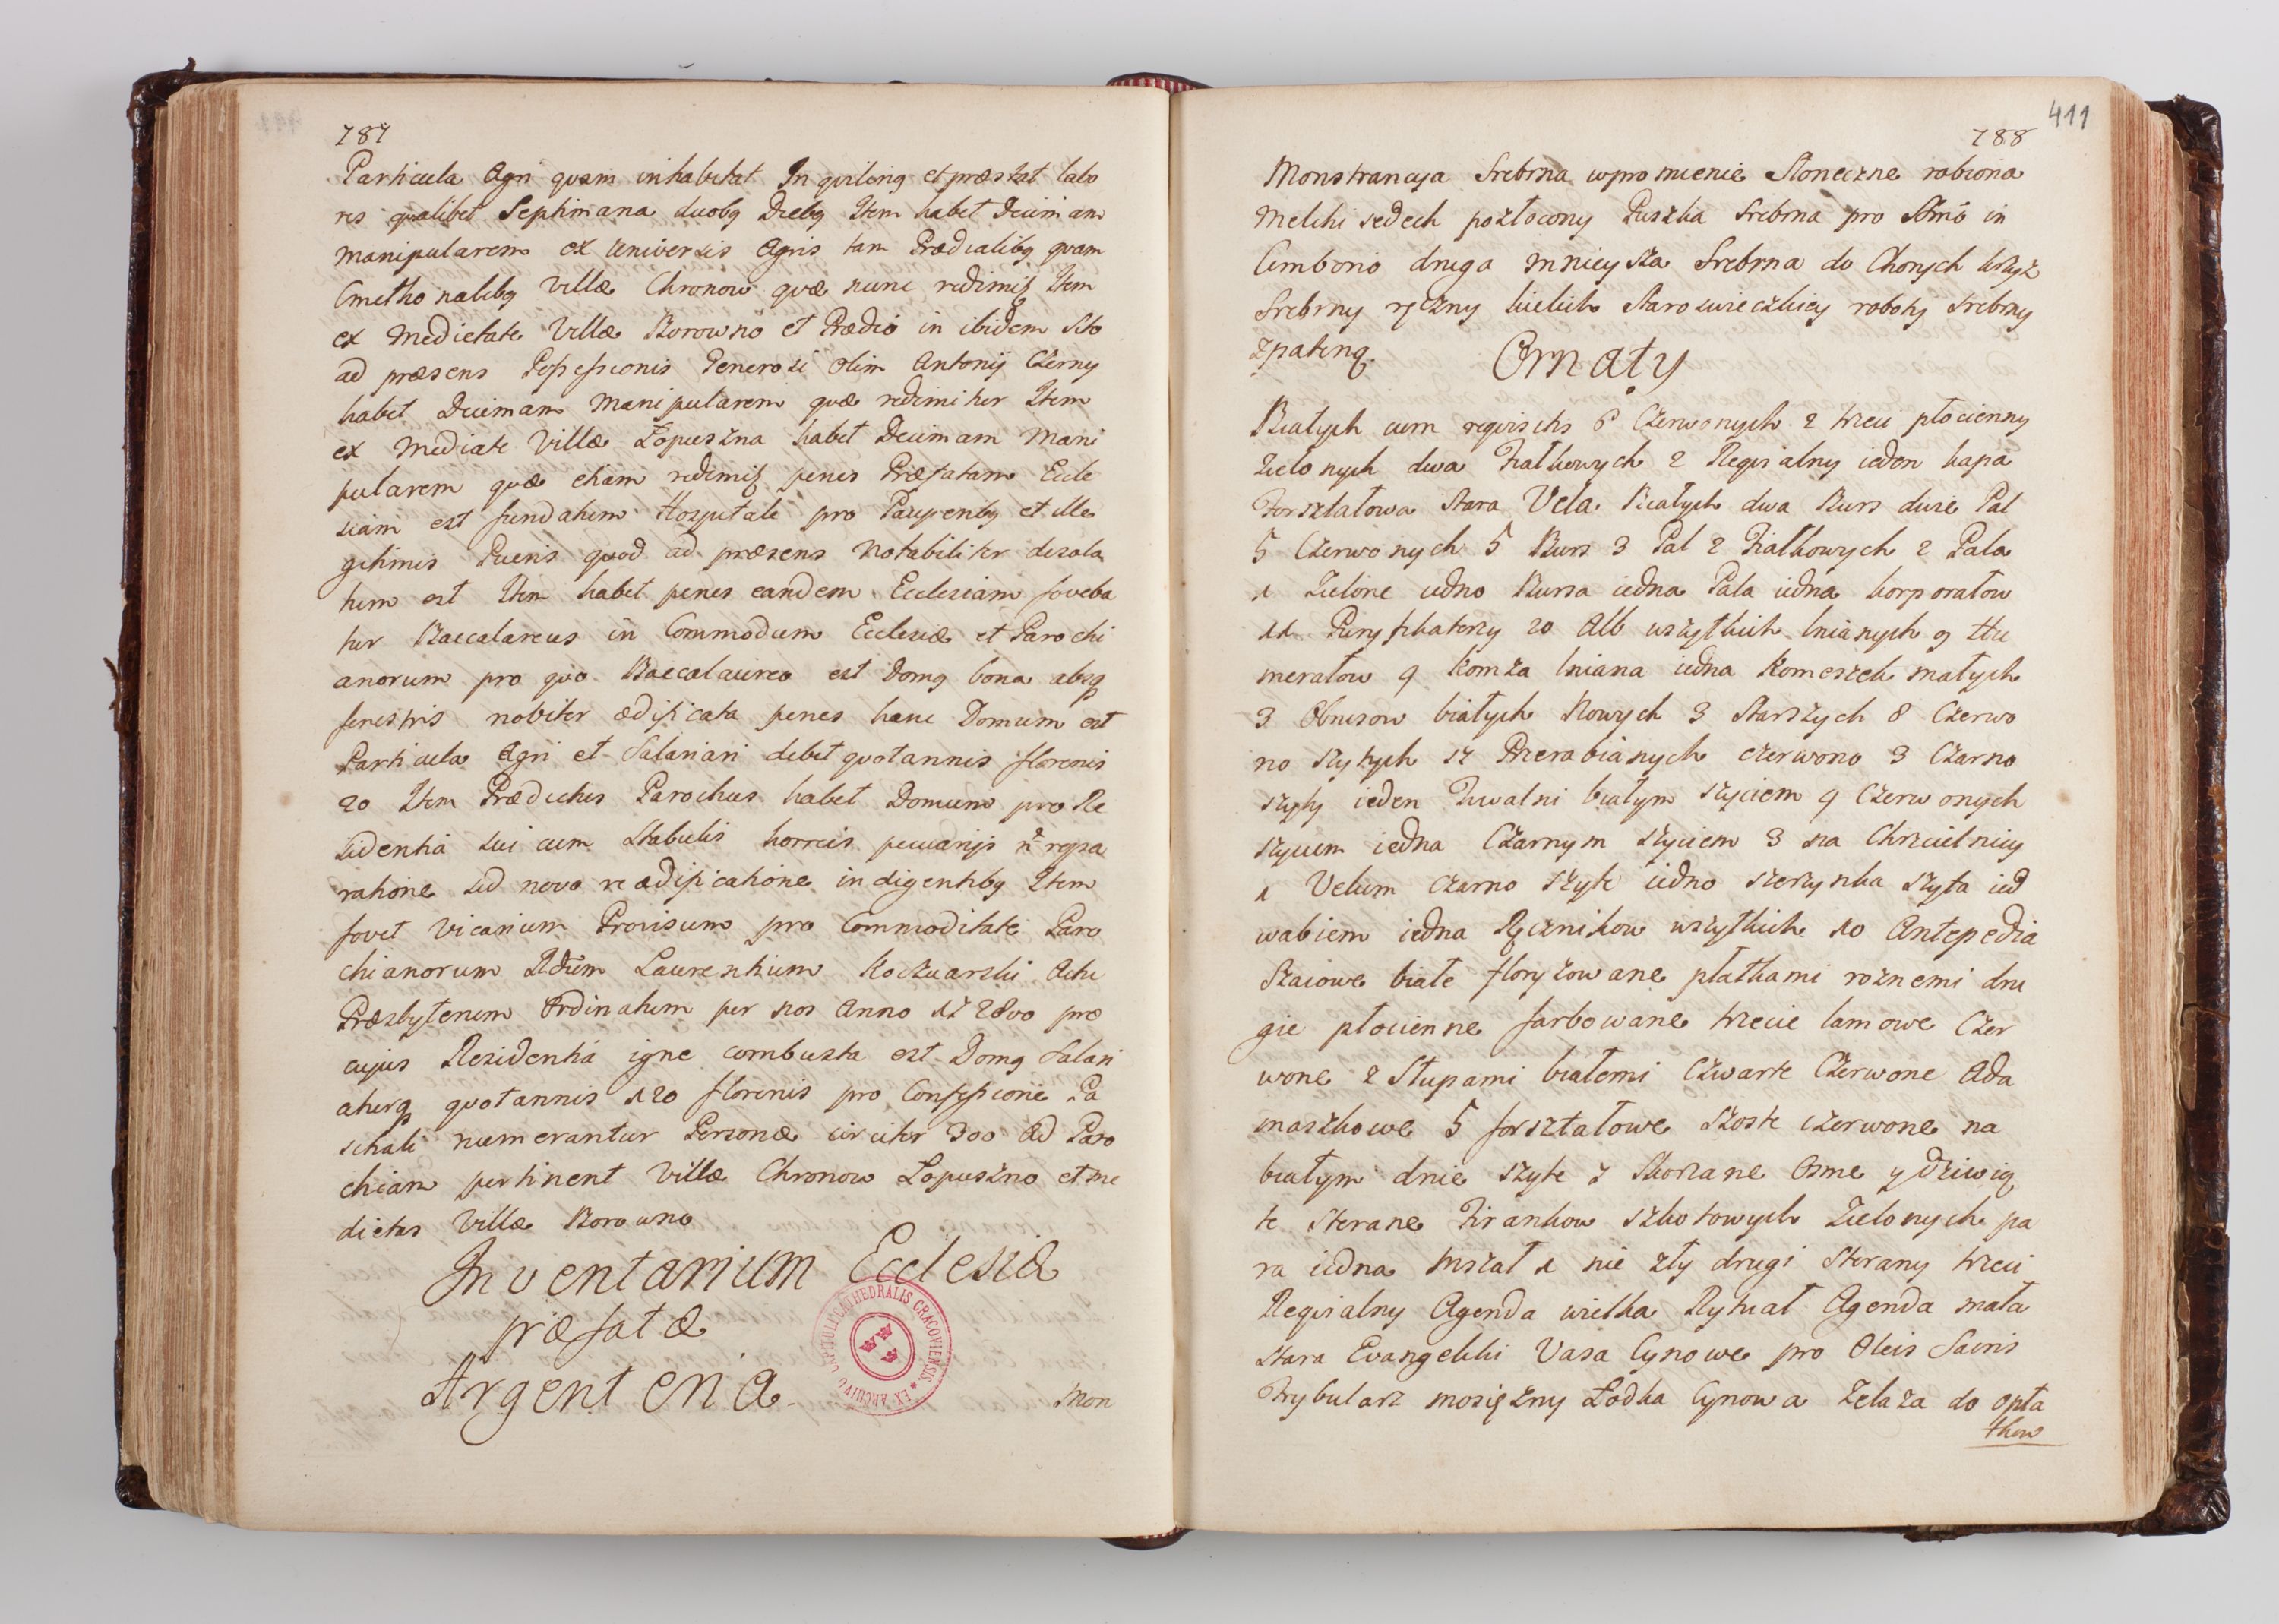 787
Particula Agri quam inhabitat Inquilinq et præstat labo
res qualibet Septimana duobq Diebq Item habet Decimam
manipularem ex Universis Agris tam Prædialibq quam
Cmethonalibq Villæ Chronow quæ nunc redimitz Item
ex Medietate Villæ Borowno et Prædio in ibidem Sito
ad præsens Possessionis Generosi olim Antonij Czerny
habet Decimam Manipularem quæ redimitur Item
ex Mediate Villæ Łopuszna habet Decimam Mani
pularem quæ etiam redimitz penes Præfatam Eccle
siam est fundatum Hospitale pro Pauperibq et ille
gitimis Pueris quod ad præsens Notabiliter desola
tum est Item habet penes eandem Ecclesiam foveba
tur Baccalareus in Commodum Ecclesiæ et Parochi
anorum pro quo Baccalaureo est Domq bona absq
fenestris nobiter ædificata penes hanc Domum est
Particula Agri et Salariari debet quotannis florenis
20 Item Prædictus Parochus habet Domum pro Re
sidentia sui cum Stabulis horreis
ratione sed nova reædificatione indigentibq Item
fovet Vicarium Provisum pro Commoditate Paro
chianorum Laurentium Koczwarski Actu
Præsbyterum Ordinatum per nos Anno 1728vo pro
cujus Residentia igne combusta est Domq Salari
aturq quotannis 120 florenis pro Confessione Pa
schali numerantur Personæ circiter 300 Ad Paro
chiam pertinent Villæ Chronow Lopuszno et me
dietas Villæ Borowno
Inventarium Ecclesiæ
præfatæ
Argenteria
Mon
EX ARCHIVO CAPITULI CATHEDRALIS CRACOVIENSIS
411
788
Monstrancya Srebrna w promienie Słoneczne robiona
Melchisedech pozłocony Puszka Srebrna pro Ssmo in
Cimborio druga mnieysza Srebrna do Chorych krzyż
Srebrny ręczny kielich Staroswieczkiey roboty srebrny
z pateną.
Ornaty
Białych cum requisitis 6 Czerwonych 2 trzeci płocienny
Zielonych dwa Fiałkowych 2 Requialny ieden kapa
Forsztatowa Stara Vela Białych dwa Burs dwie Pal
5 Czerwonych 5 Burs 3 Pal 2 Fiałkowych 2 Pala
1 Zielone iedno Bursa iedna Pala iedna korporałow
11 Puryfikaterzy 20 Alb wszytkich lnianych 9 Hu
merałow 9 komza lniana iedna Komeszek małych
3 Obrusow białych Nowych 3 Starszych 8 Czerwo
no szytych 12 Przerabianych czerwono 3 Czarno
szyty ieden Tuwalni białym szyciem 9 Czerwonych
szyciem iedna Czarnym szyciem 3 na Chrzcielnicy
1 Velum Czarno szyte iedno szerzynka szyta ied
wabiem iedna Ręcznikow wszytkich 10 Antepedia
Szaiowe białe floryzowane płatkami roznemi dru
gie płocienne farbowane trzecie lamowe Czer
wone z Słupami białemi Czwarte Czerwone Ada
maszkowe 5 forsztatowe szoste czerwone na
białym dnie szyte 7 Skorzane Osme y Dziwią
te Sterane Firankow szkotowych Zielonych pa
ra iedna mszał 1 nie zły drugi Sterany trzeci
Requialny Agenda wielka Rytuał Agenda mała
stara Evangeliki Vasa Cynowe pro Oleis Sacris
Trybularz mosiężny Łodka Cynowa Zelaza do opła
tkow